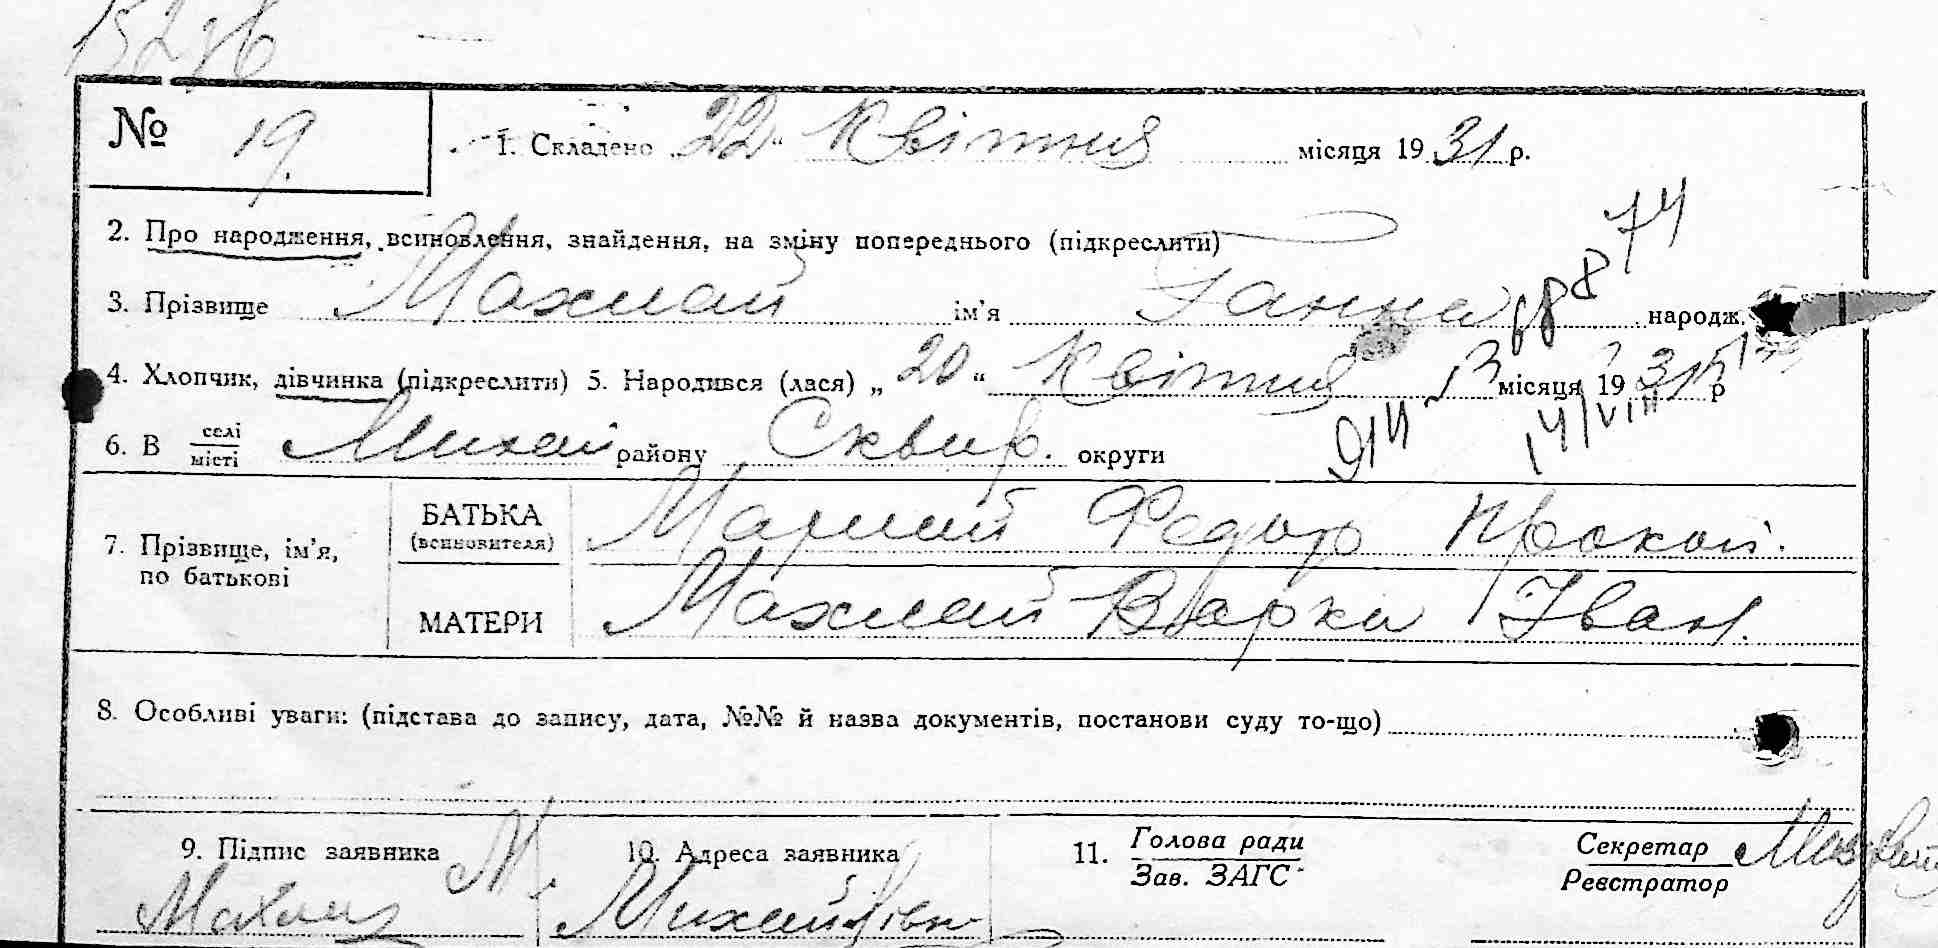 № 19.
1. Складено „22“ Квітня місяця 1931 р.
74
2. Про народження, всиновлення, знайдення, на зміну попереднього (підкреслити)
888
3. Прізвище Махмай ім’я Ганна народж.
4. Хлопчик, дівчинка (підкреслити) 5. Народився (лася) „20“ Квітня місяця 1931 р
914 14/VIII
6. В селі місті Михай району Сквир. округи
7. Прізвище, ім’я, по батькові
БАТЬКА (всиновителя) Федор Прокоп.
МАТЕРИ Махмай Варка Іван.
8. Особливі уваги: (підстава до запису, дата, №№ й назва документів, постанови суду то-що)
9. Підпис заявника М.
10. Адреса заявника Михайлівк
11. Голова ради Зав. ЗАГС
Секретар Реєстратор